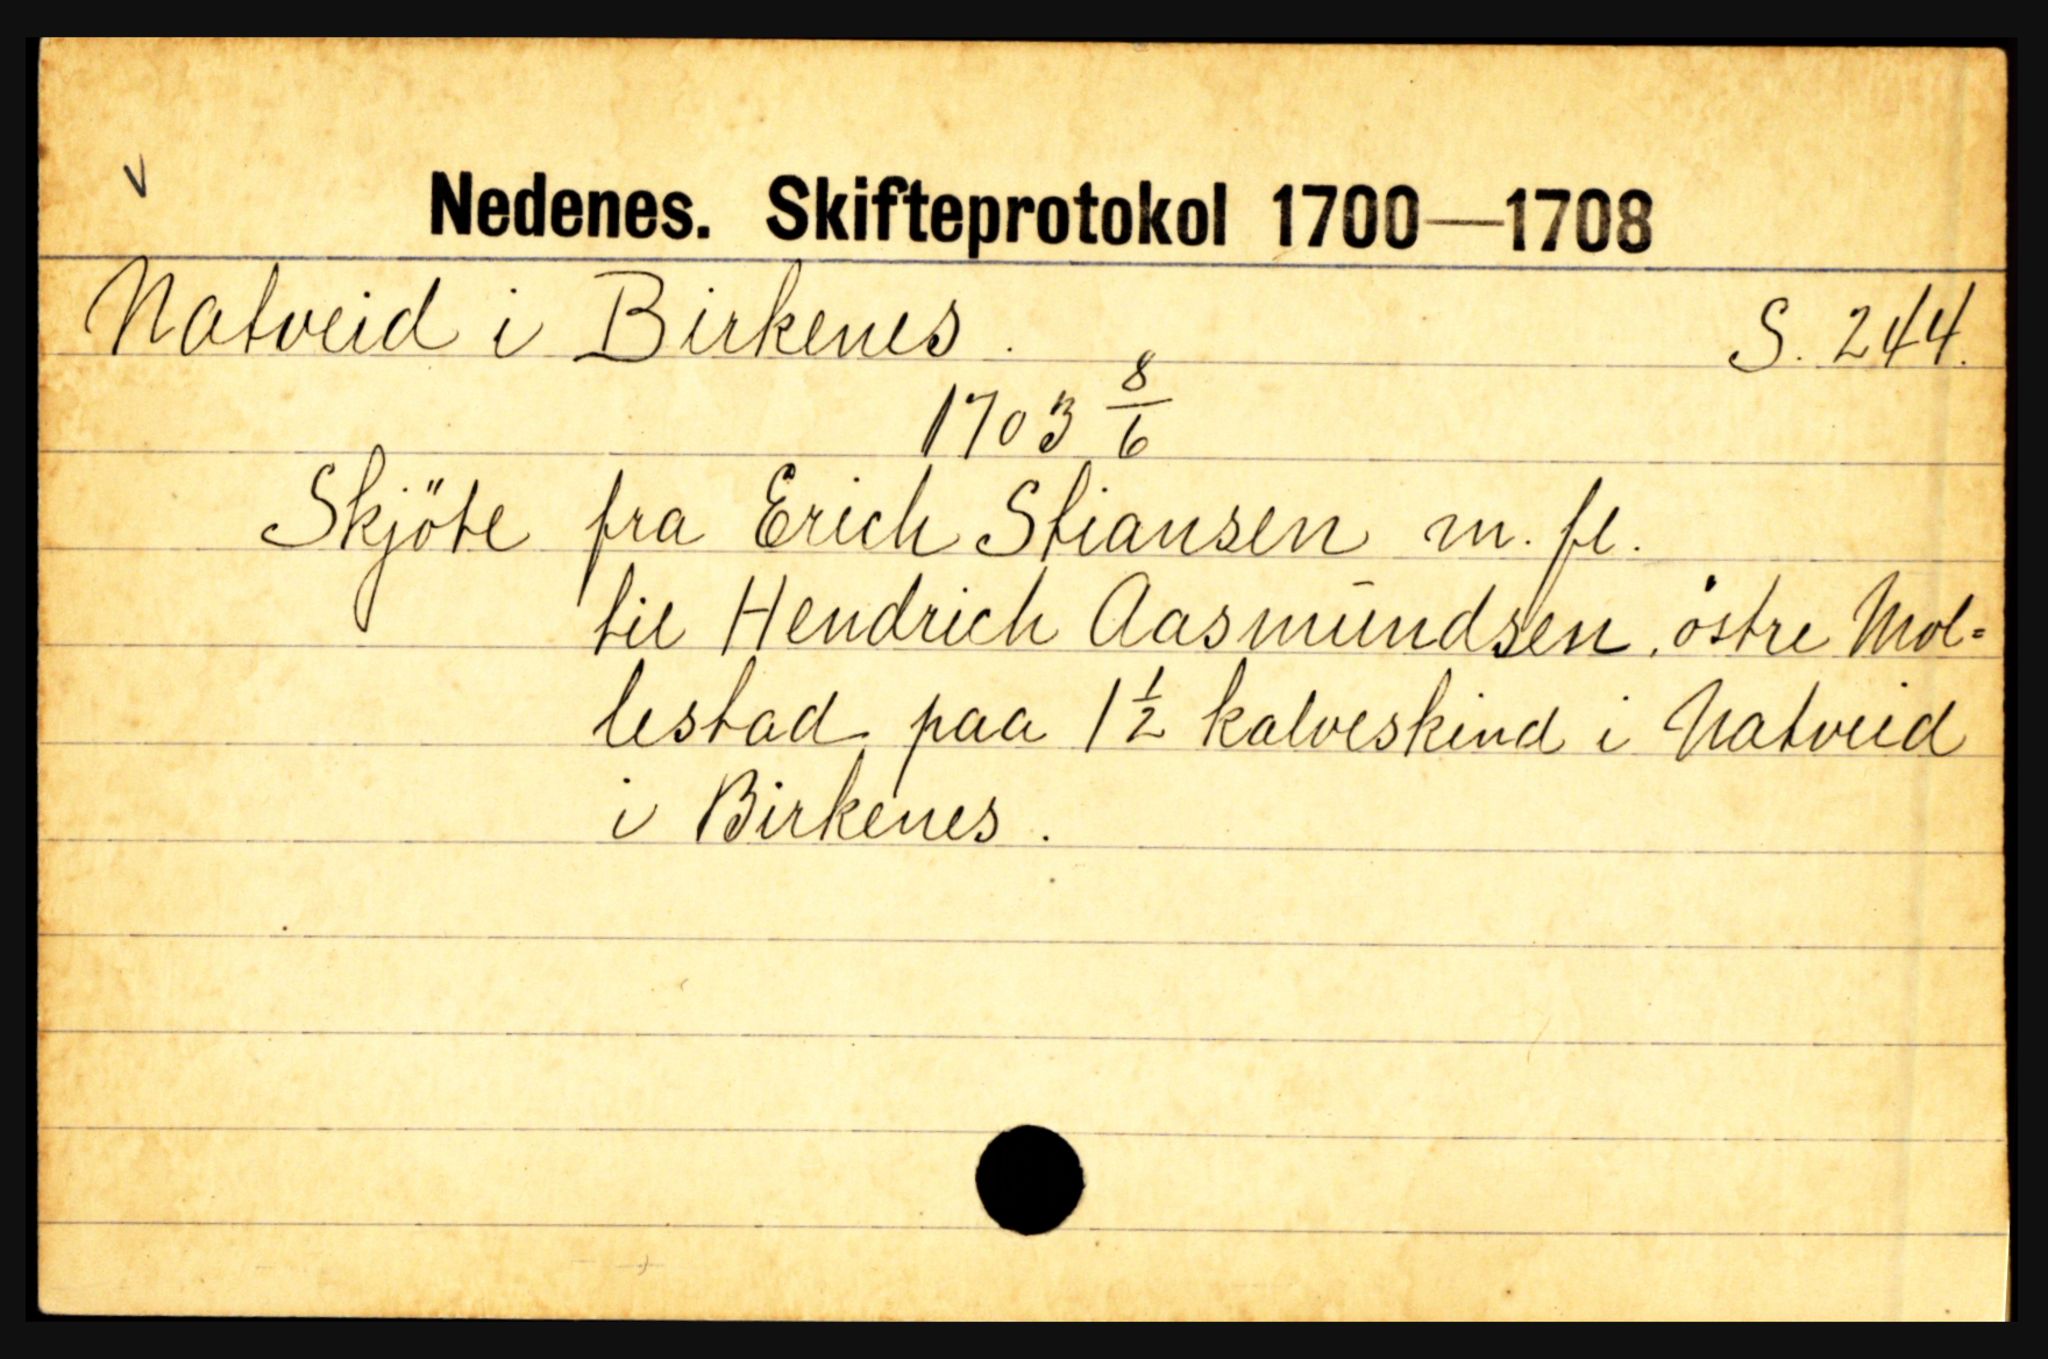 v
Nedenes. Skifteprotokol 1700—1708
Natveid i Birkenes. S. 244.
1703 8/6
Skjöte fra Erich Stiansen m. fl.
til Hendrich Aasmundsen, östre Mol=
lestad, paa 1 1/2 kalveskind i Natveid
i Birkenes.